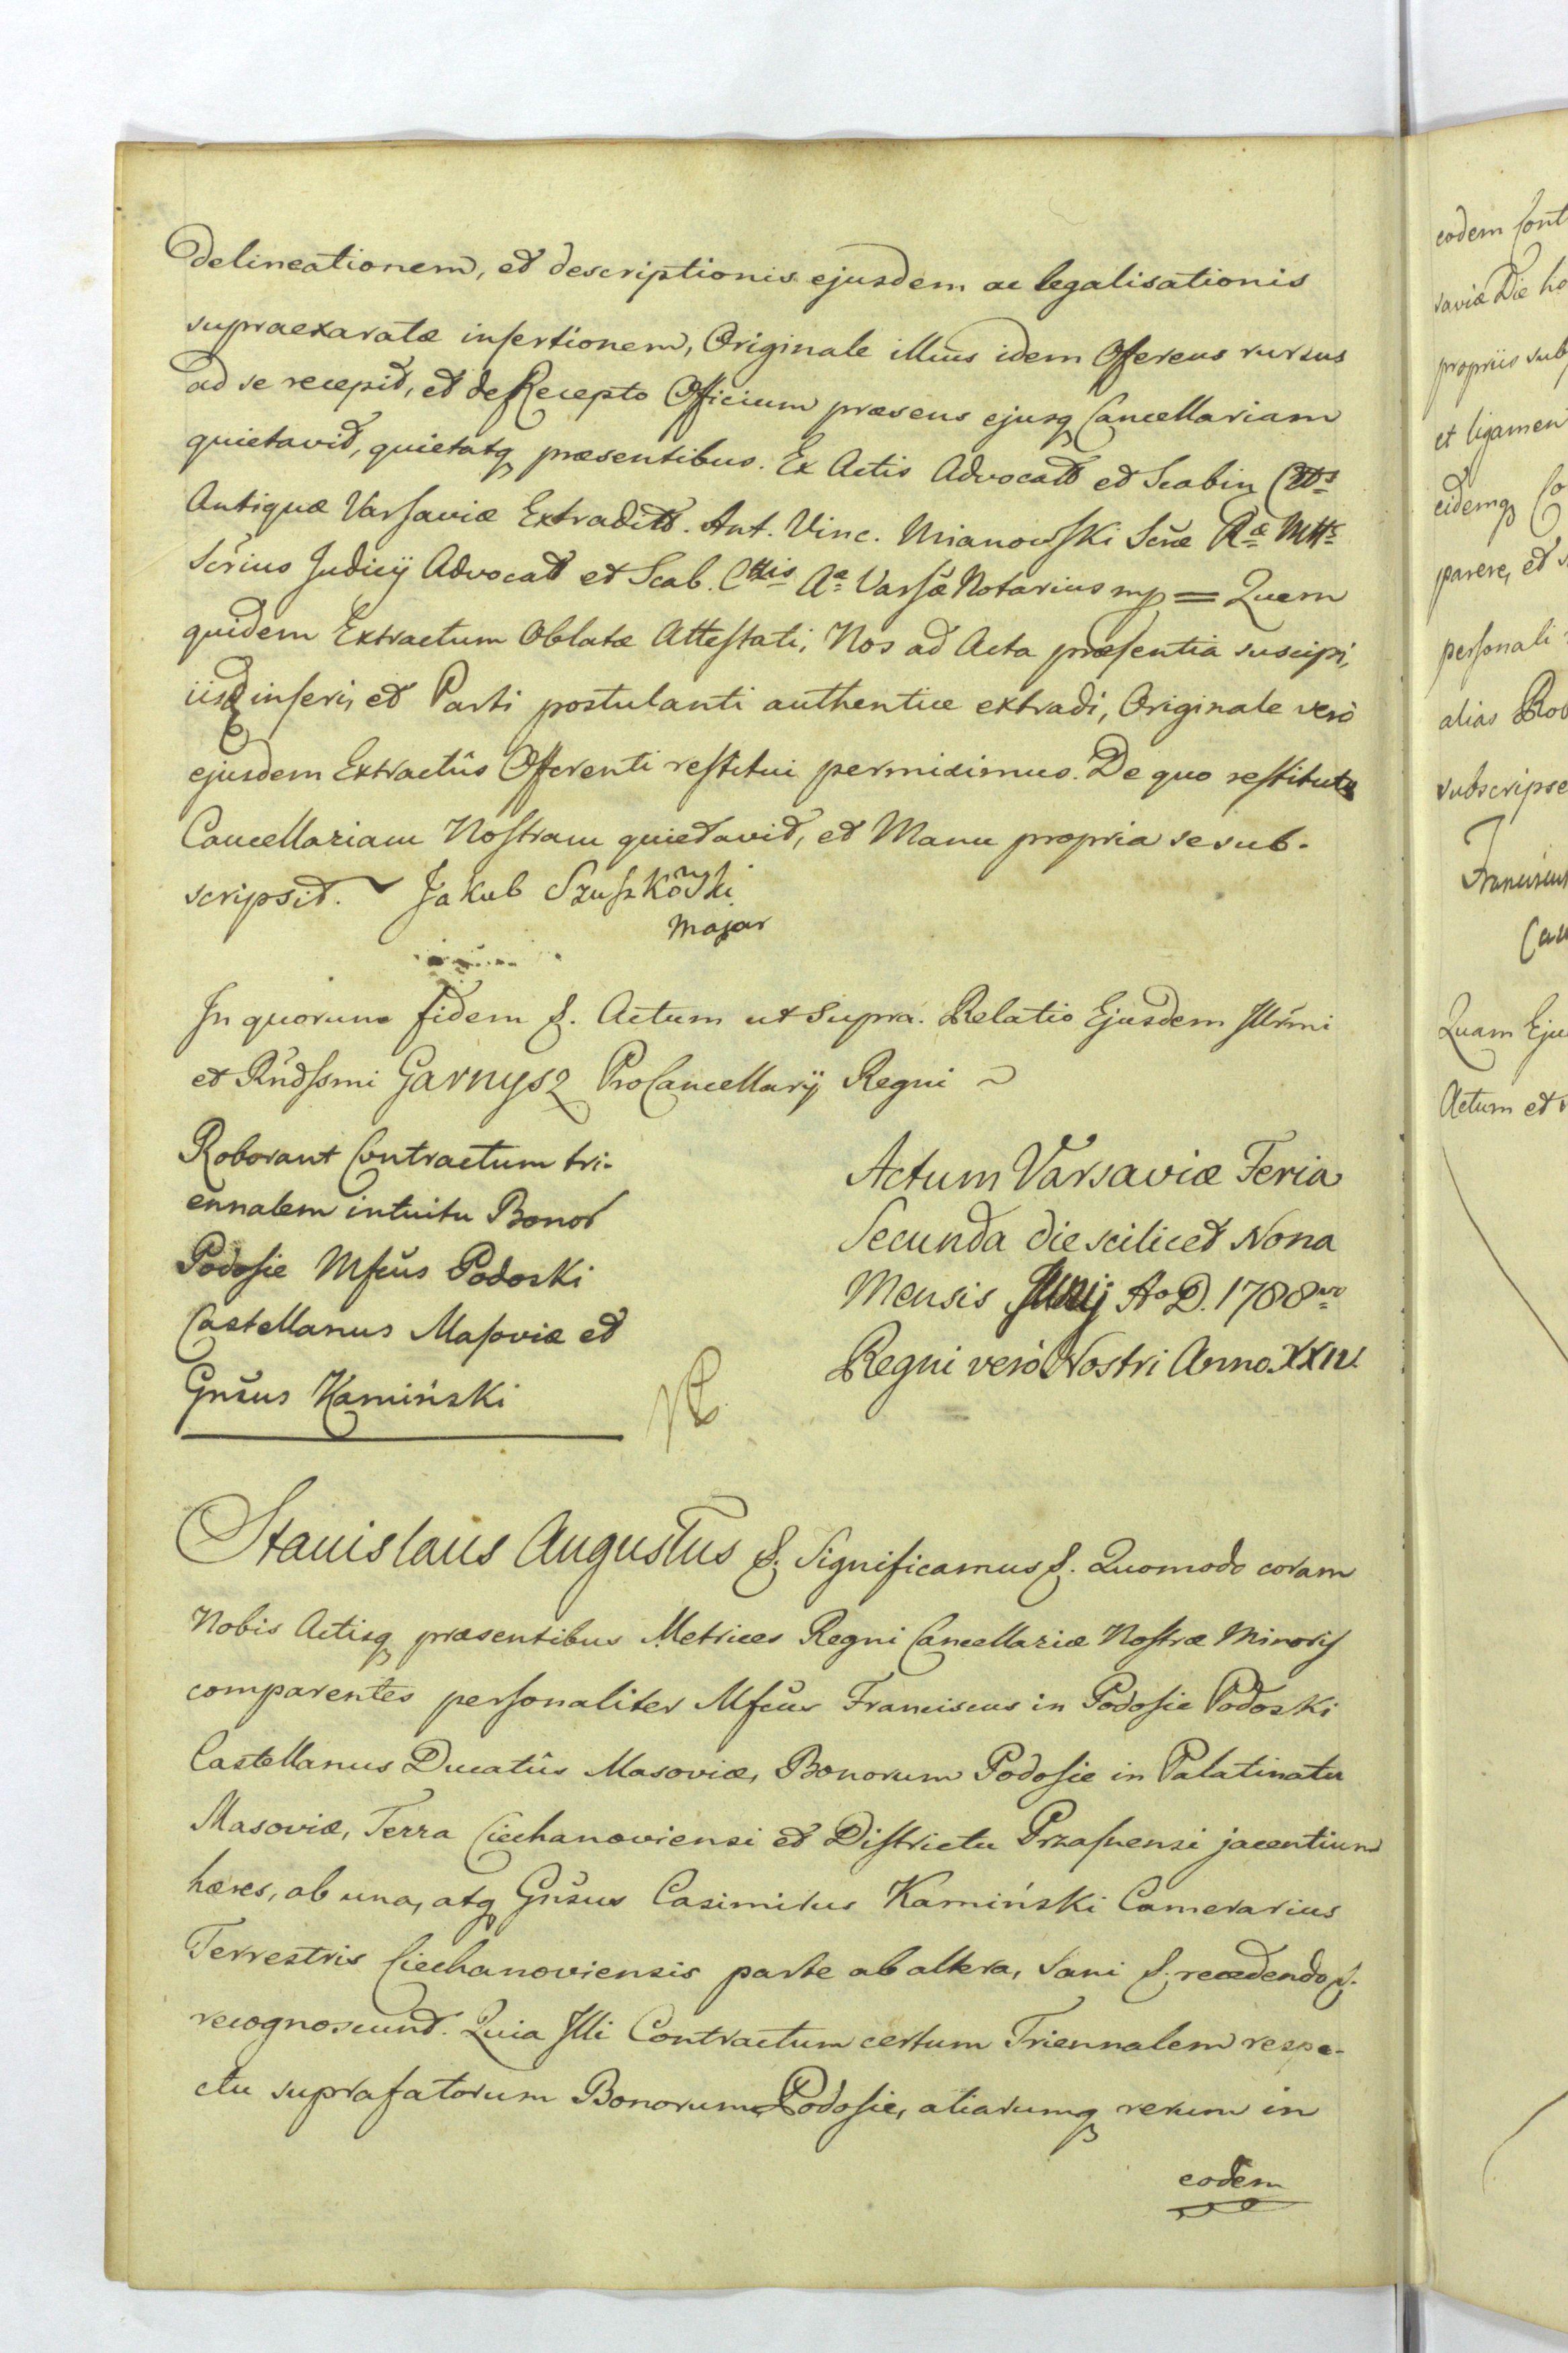 delineationem, et descriptionis ejusdem ac legalisationis
supraexaratæ insertionem, Originale illius idem Offerens rursus
ad se recepit, et de Recepto Officium præsens ejusq Cancellariam
quietavit, quietatq præsentibus. Ex Actis Advocatt et Scabin Cttis
Antiquæ Varsaviæ Extraditt. Ant. Vinc. Mianowski Scræ Ræ Mttis
Scrius Judicij Advocatt et Scab. Cttis Aæ Varsæ Notarius mp = Quem
quidem Extractum Oblatæ Attestati, Nos ad Acta præsentia suscipi,
iisq inseri, et Parti postulanti authentice extradi, Originale verò
ejusdem Extractûs Offerenti restitui permisimus. De quo restituto
Cancellariam Nostram quietavit, et Manu propria se sub-
scripsit. Jakub Szuszkowski
major
In quorum fidem &. Actum ut supra. Relatio Ejusdem Illrmi
et Rndssmi Garnysz ProCancellarij Regni
Roborant Contractum tri-
ennalem intuitu Bonor
Podosie Mfcus Podoski
Castellanus Masoviæ et
Gnsus Kamiński
Actum Varsaviæ Feria
Secunda die scilicet Nona
Mensis Junij Ao D. 1788vo
Regni verò Nostri Anno XXIV
Stanislaus Augustus &. Significamus &. Quomodo coram
Nobis Actisq præsentibus Metrices Regni Cancellariæ Nostræ Minoris
comparentes personaliter Mfcus Franciscus in Podosie Podoski
Castellanus Ducatûs Masoviæ, Bonorum Podosie in Palatinatu
Masoviæ, Terra Ciechanoviensi et Districtu Przasnensi jacentium
hæres, ab una, atq Gnsus Casimirus Kamiński Camerarius
Terrestris Ciechanoviensis parte ab altera, Sani &. recedendo &.
recognoscunt. Quia Illi Contractum certum Triennalem respe-
ctu suprafatorum Bonorum Podosie, aliarumq rerum in
eodem
eodem Cont
saviæ Die
propriis sub
et ligamen
eidemq Co
parere, et
personali
alias Rob
subscripse
Franciscus
Cas
Quam Eju
Actum et